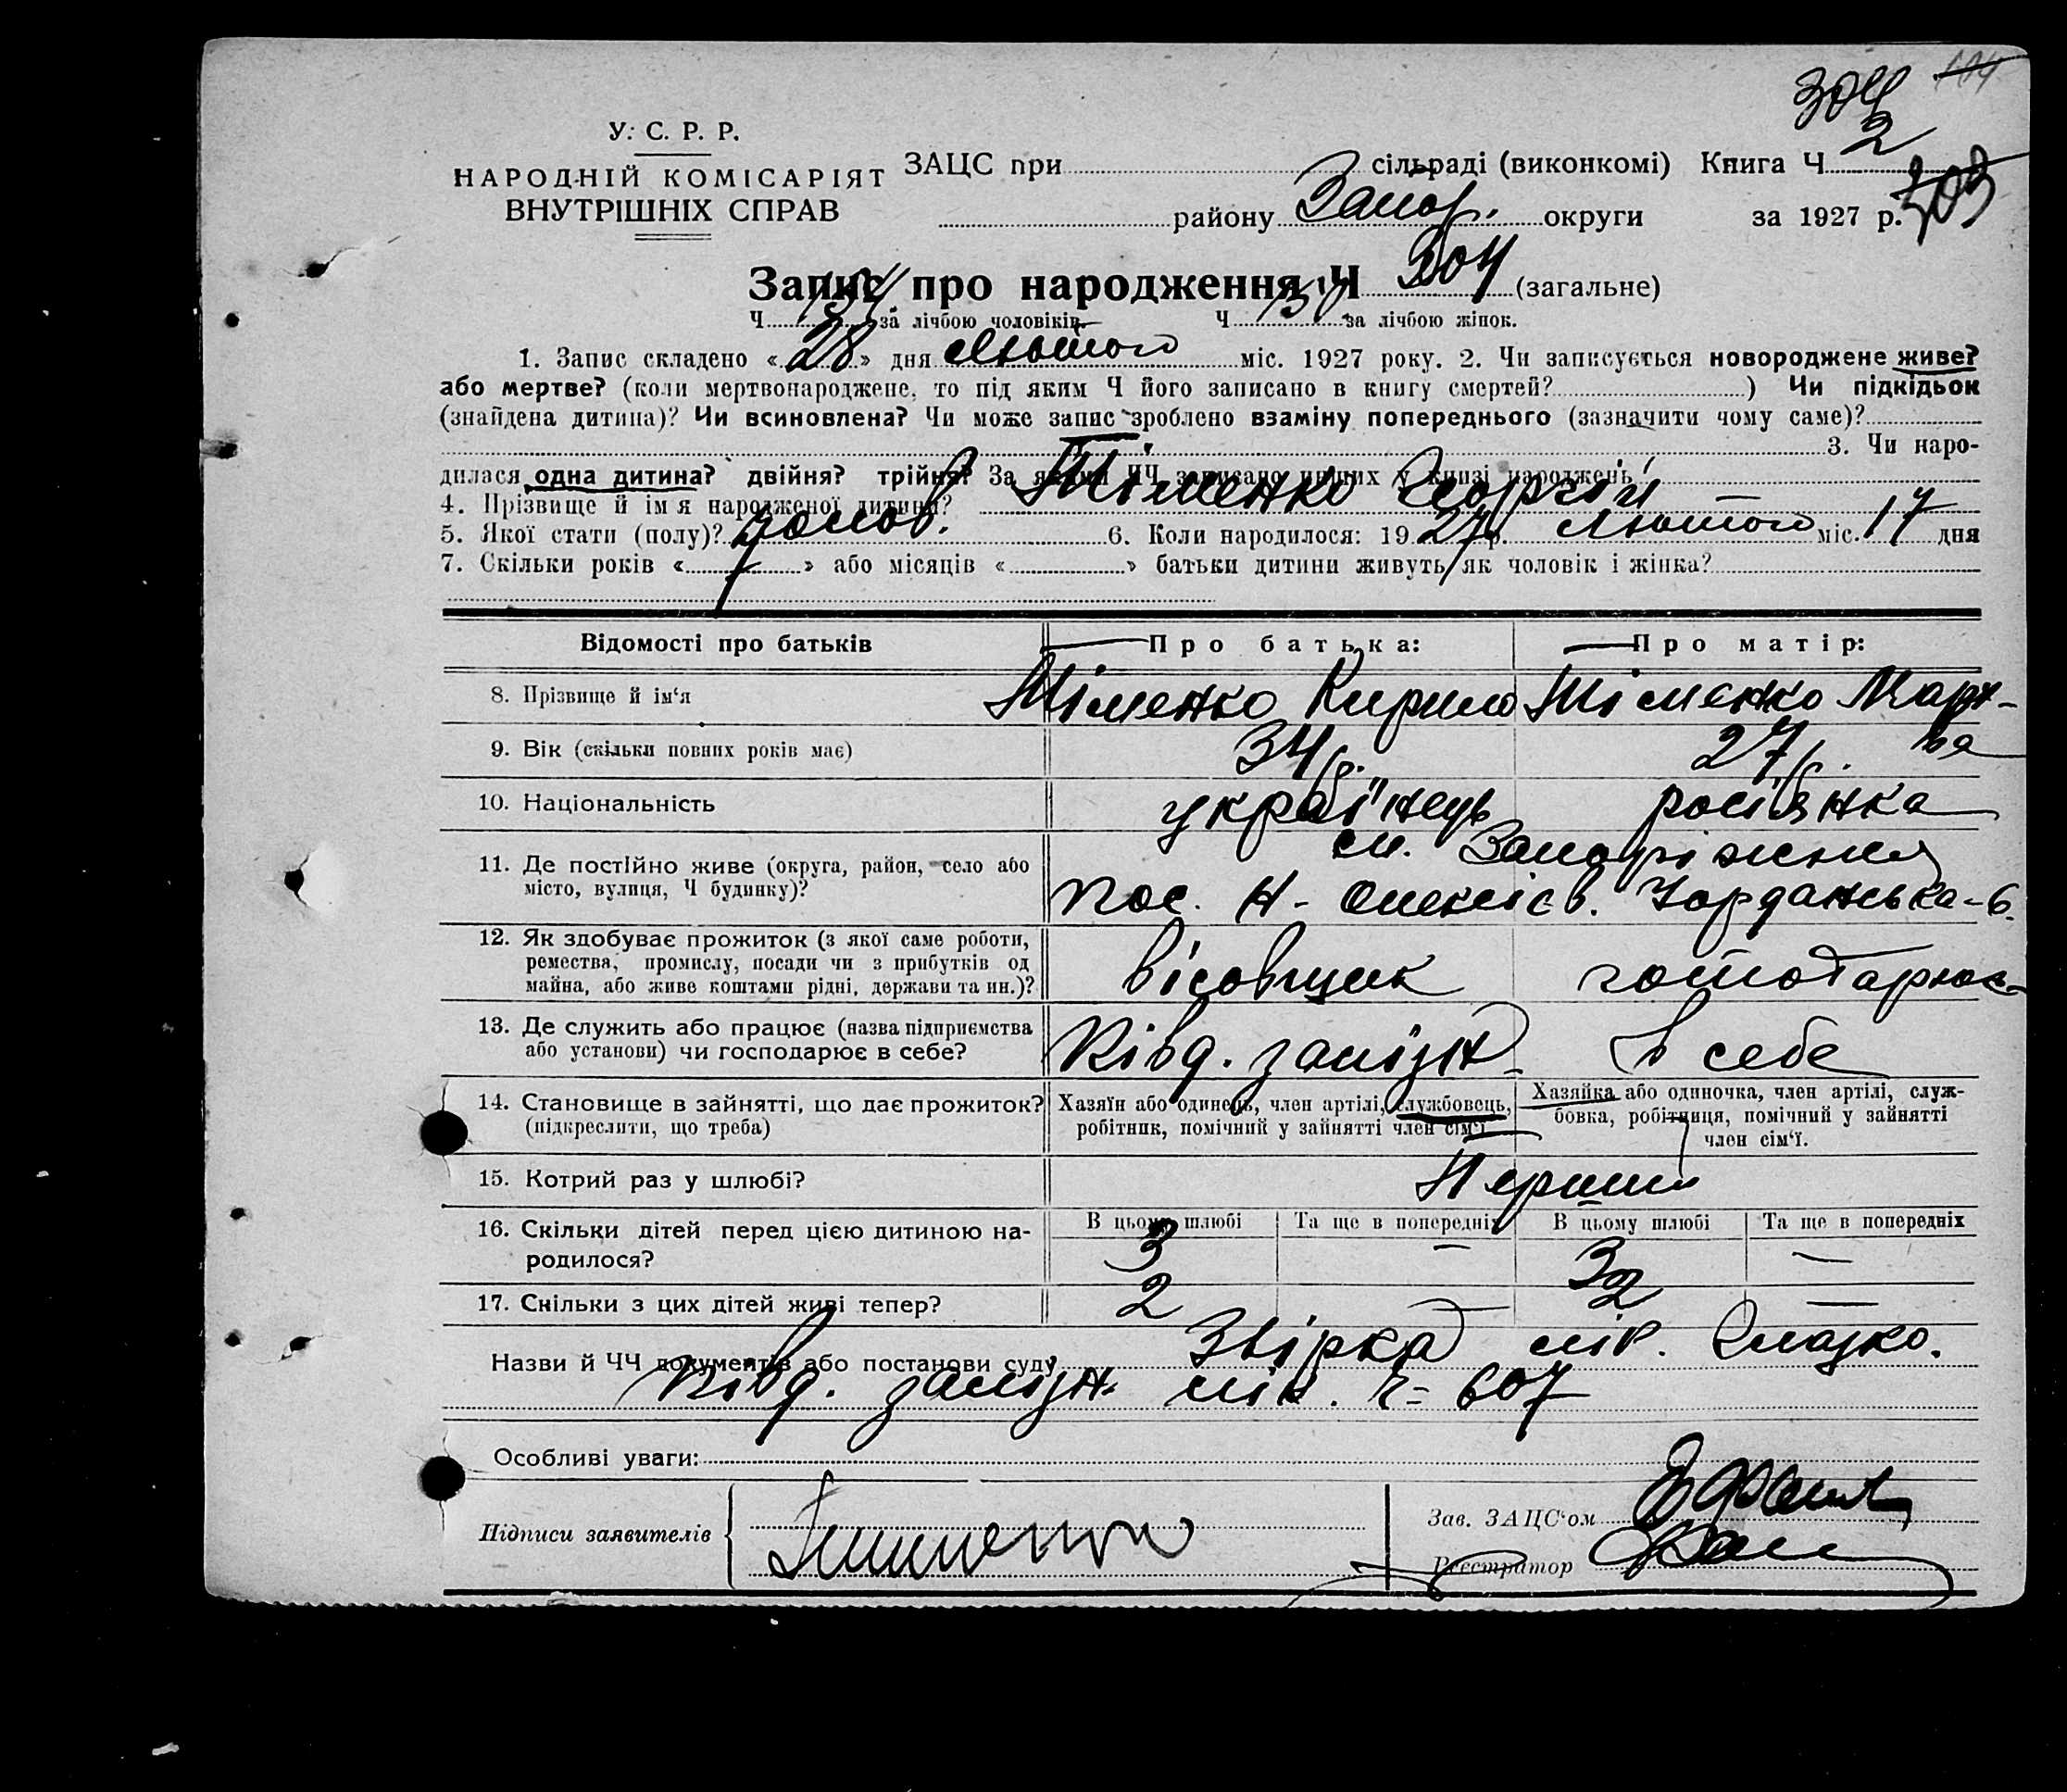 304
104
У. С. Р. Р.
НАРОДНІЙ КОМІСАРІЯТ
ВНУТРІШНІХ СПРАВ
ЗАЦС при сільраді (виконкомі) Книга Ч. 2
району Запор. округи за 1927 р. 303
Запис про народження Ч 304 (загальне)
Ч. за лічбою чоловіків. Ч. за лічбою жінок.
1. Запис складено «28» дня Лютого міс. 1927 року. 2. Чи записується новороджене живе?
або мертве? (коли мертвонароджене, то під яким Ч його записано в книгу смертей? ) Чи підкідьок
(знайдена дитина)? Чи всиновлена? Чи може запис зроблено взаміну попереднього (зазначити чому саме)?
3. Чи наро-
дилася одна дитина? двійня? трійня? За якими ЧЧ записано инших у книзі народжень
4. Прізвище й ім'я народженої дитини? Тіменко Георгій
5. Якої стати (полу)? чолов. 6. Коли народилося: 1927 р. Лютого міс. 17 дня
7. Скільки років « » або місяців « » батьки дитини живуть як чоловік і жінка?
Відомості про батьків Про батька: Про матір:
8. Прізвище й ім'я Тіменко Кирило Тіменко Мар
9. Вік (скільки повних років має) 34 р. 27 р.
10. Національність українець росіянка
11. Де постійно живе (округа, район, село або м. Запоріжжя
місто, вулиця, Ч будинку)? пос. Н-Олексієв. Йорданська-6.
12. Як здобуває прожиток (з якої саме роботи,
ремества, промислу, посади чи з прибутків од вісовщик господарює
майна, або живе коштами рідні, держави та ин.)?
13. Де служить або працює (назва підприємства
або установи) чи господарює в себе? Півд. залізн. в себе
14. Становище в зайнятті, що дає прожиток? Хазяїн або одинець, член артілі, службовець, Хазяйка або одиночка, член артілі, служ-
(підкреслити, що треба) робітник, помічний у зайнятті член сім'ї бовка, робітниця, помічний у зайнятті
член сім'ї.
15. Котрий раз у шлюбі? Перший
16. Скільки дітей перед цією дитиною на- В цьому шлюбі Та ще в попередніх В цьому шлюбі Та ще в попередніх
родилося? 3 — 3 —
17. Скільки з цих дітей живі тепер? 2 — 2 —
Назви й ЧЧ документів або постанови суду Звірка лік.
Півд. залізн. лік. Ч= 607
Особливі уваги:
Підписи заявителів Тименко Зав. ЗАЦС'ом
Реєстратор